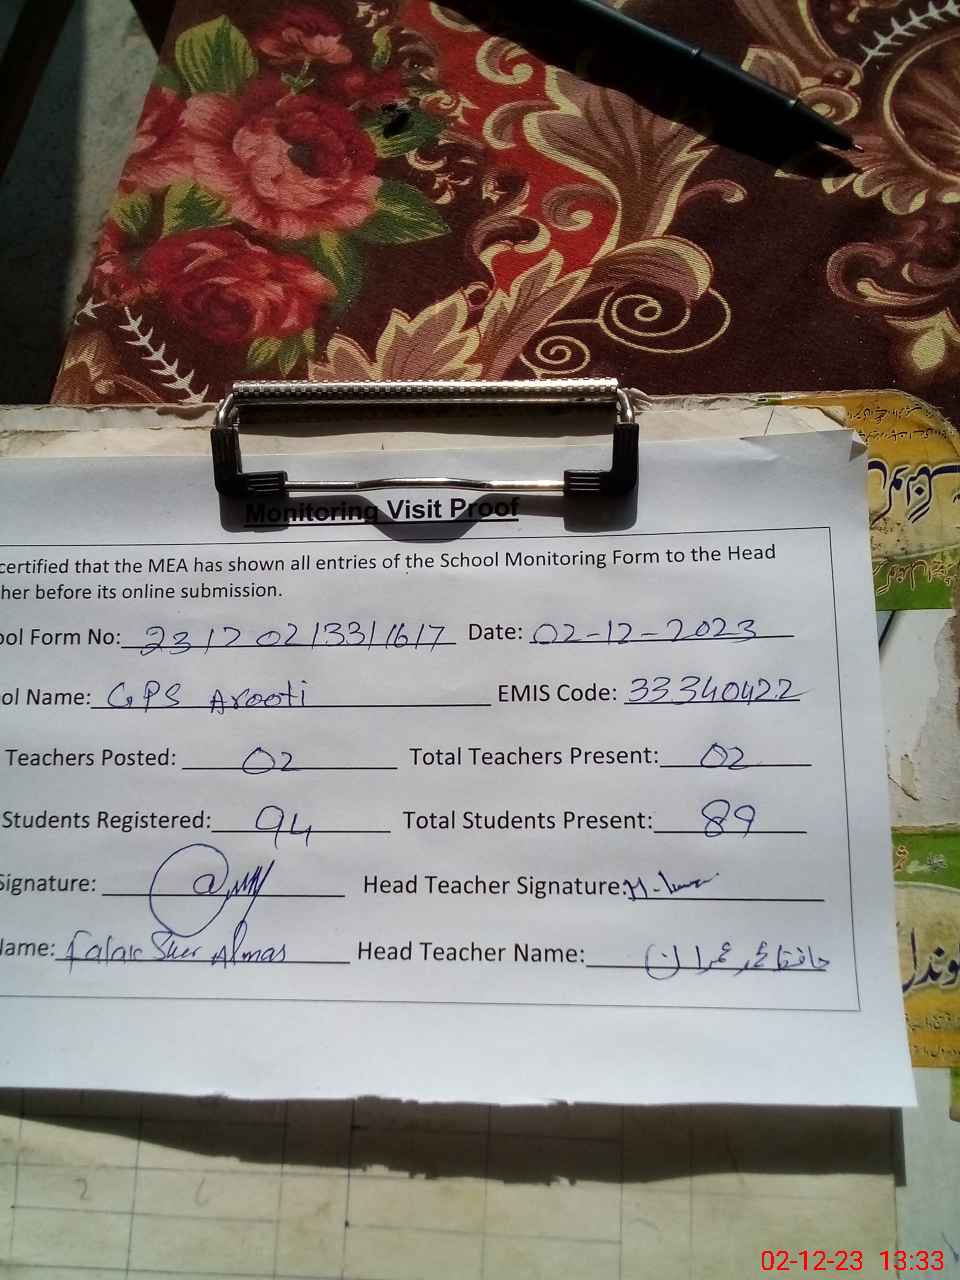 Monitoring Visit Proof
certified that the MEA has shown all entries of the School Monitoring Form to the Head
her before its online submission.
ool Form No: 23120213311617 Date: 02-12-2023
ol Name: GPS Arooti EMIS Code: 33340422
Teachers Posted: 02 Total Teachers Present: 02
Students Registered: 94 Total Students Present: 89
Signature: Head Teacher Signature:
Name: Falak Sher Almas Head Teacher Name: حافظ محمد عمران
02-12-23 13:33